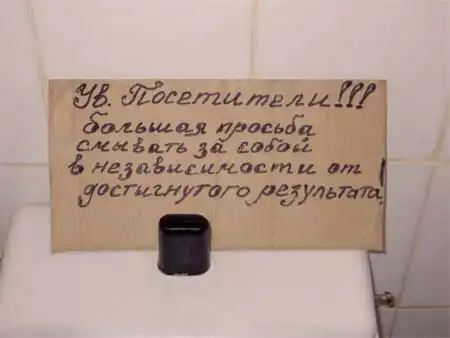 Ув. Посетители!!!
большая просьба
смывать за собой
в независимости от
достигнутого результата!